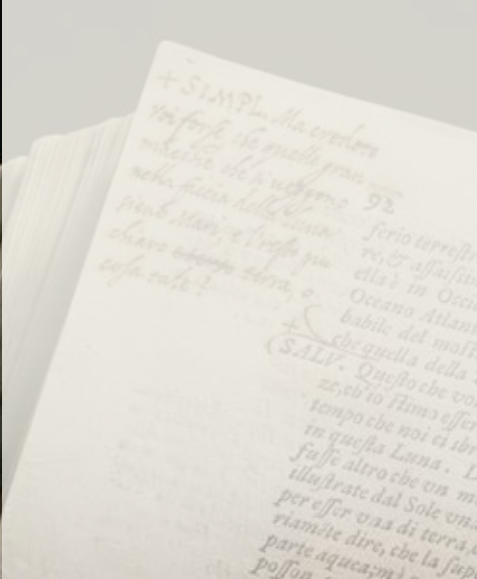 + SIMPL. Ma credete
voi forse che quelle gran
macchie, che si veggono
nella faccia della Luna
siano Mari, e'l resto piu
chiaro terra, o
cosa tale?
92
ferio terrestr
re, & assaissim
ella è in Occid
Oceano Atlant
babile del most
+
che quella della
SALV. Questo che vo
ze, ch'io stima esser
tempo che noi ci sbr
in questa Luna.
fusse altro che vn m
illustrate dal Sole vna
per esser vna di terra, e
riamẽte dire, che la sup
parte aquea; ma
posson